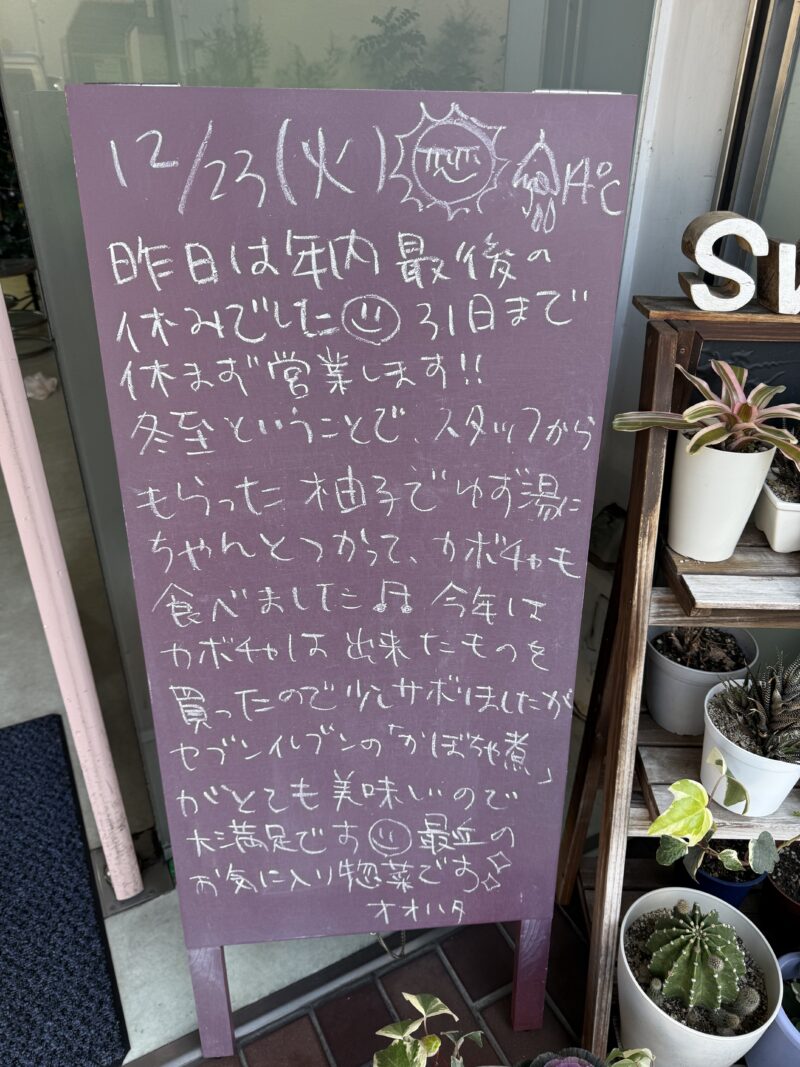 12/23(火) 14℃
昨日は年内最後の
休みでした 31日まで
休まず営業します!!
冬至ということで、スタッフから
もらった柚子でゆず湯に
ちゃんとつかって、カボチャも
食べました♫ 今年は
カボチャは出来たものを
買ったので少しサボりましたが
セブンイレブンの「かぼちゃ煮」
がとても美味しいので
大満足です 最近の
お気に入り惣菜です
オオハタ